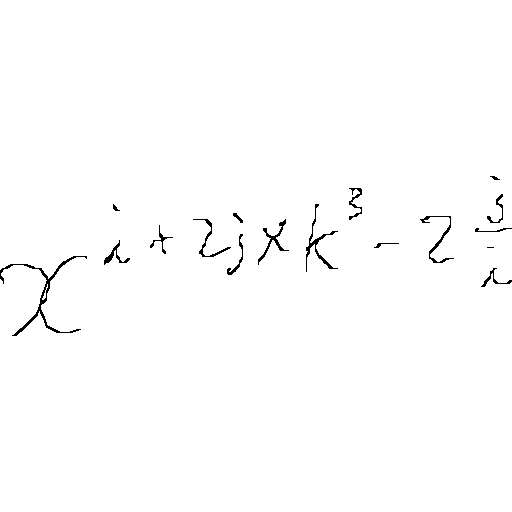 x^{i + 2j \times k^3 - 2\frac{j}{i}}